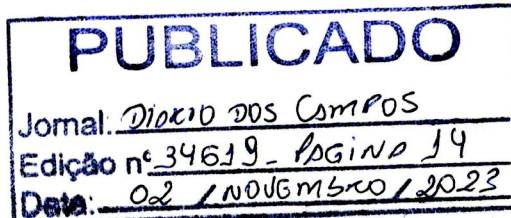 PUBLICADO
Jornal: DIARIO DOS CAMPOS
Edição nº 34619 - PAGINA 14
Data: 02 / NOVEMBRO / 2023